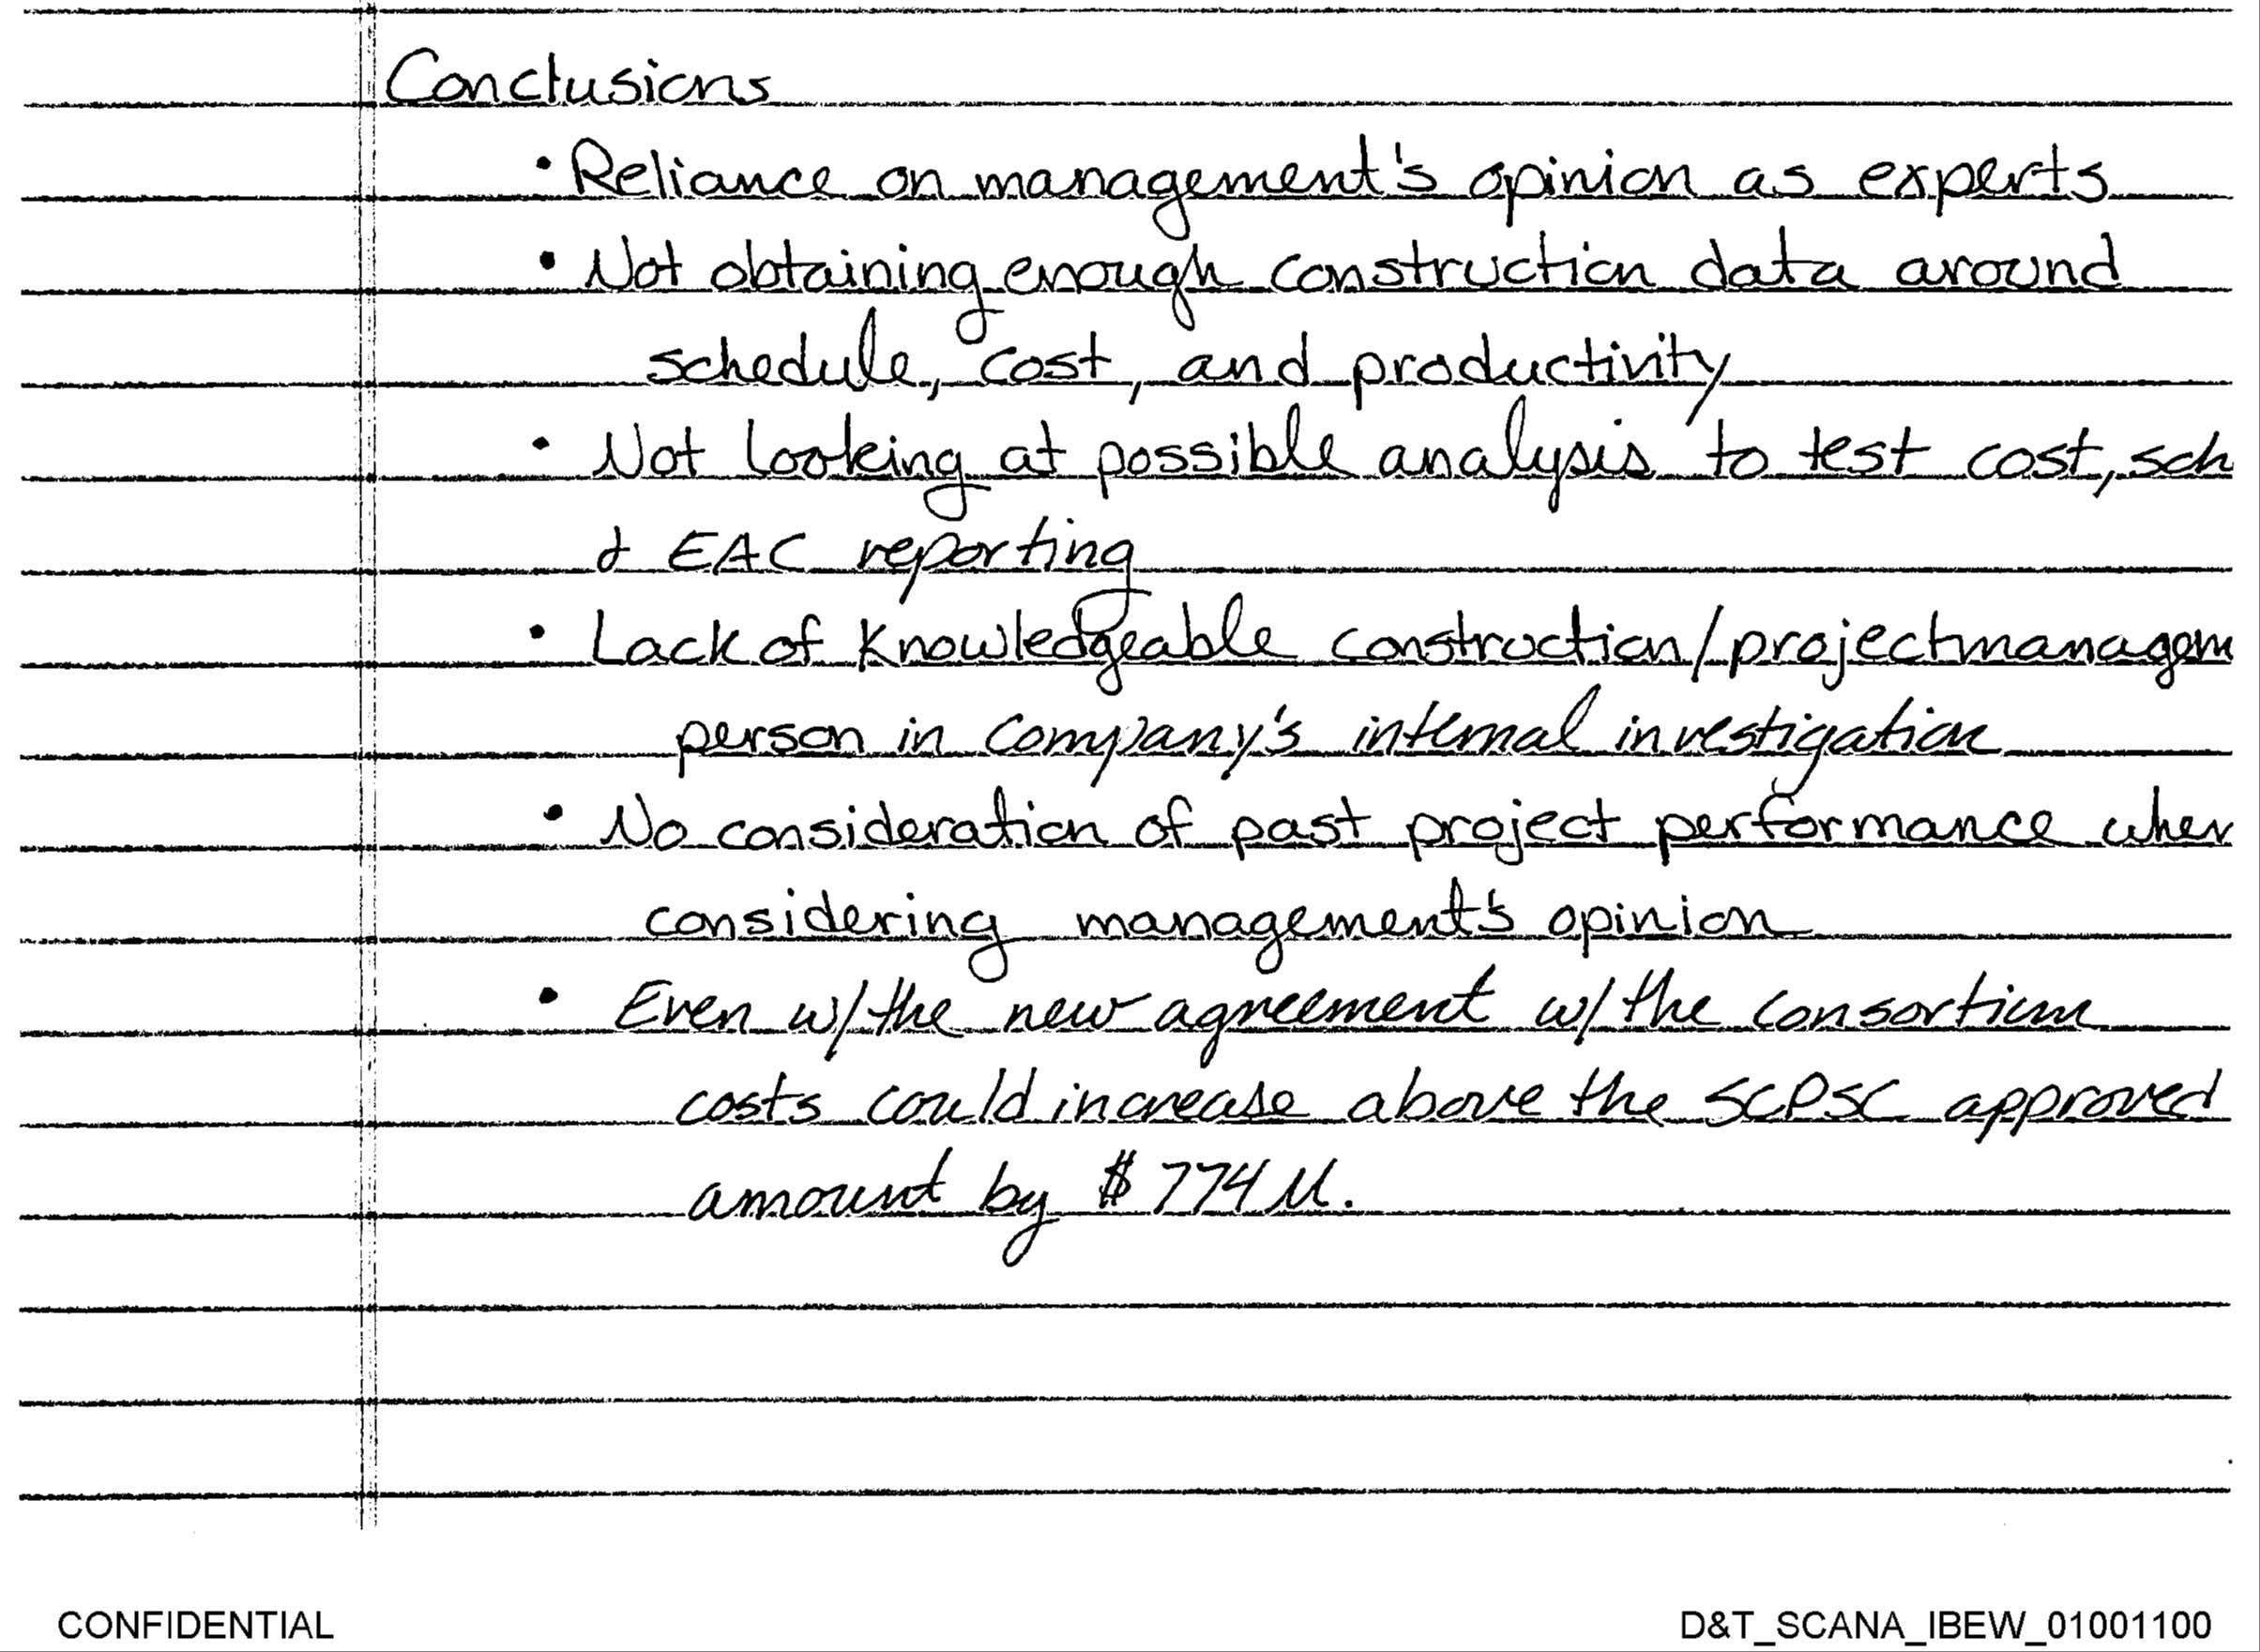 Conclusions
• Reliance on management's opinion as experts
• Not obtaining enough construction data around
schedule, cost, and productivity
• Not looking at possible analysis to test cost, sch
& EAC reporting
• Lack of knowledgeable construction/project managem
person in Company's internal investigation
• No consideration of past project performance when
considering management's opinion
• Even w/ the new agreement w/ the Consortium
costs could increase above the SCPSC approved
amount by $774 M.
CONFIDENTIAL
D&T_SCANA_IBEW_01001100